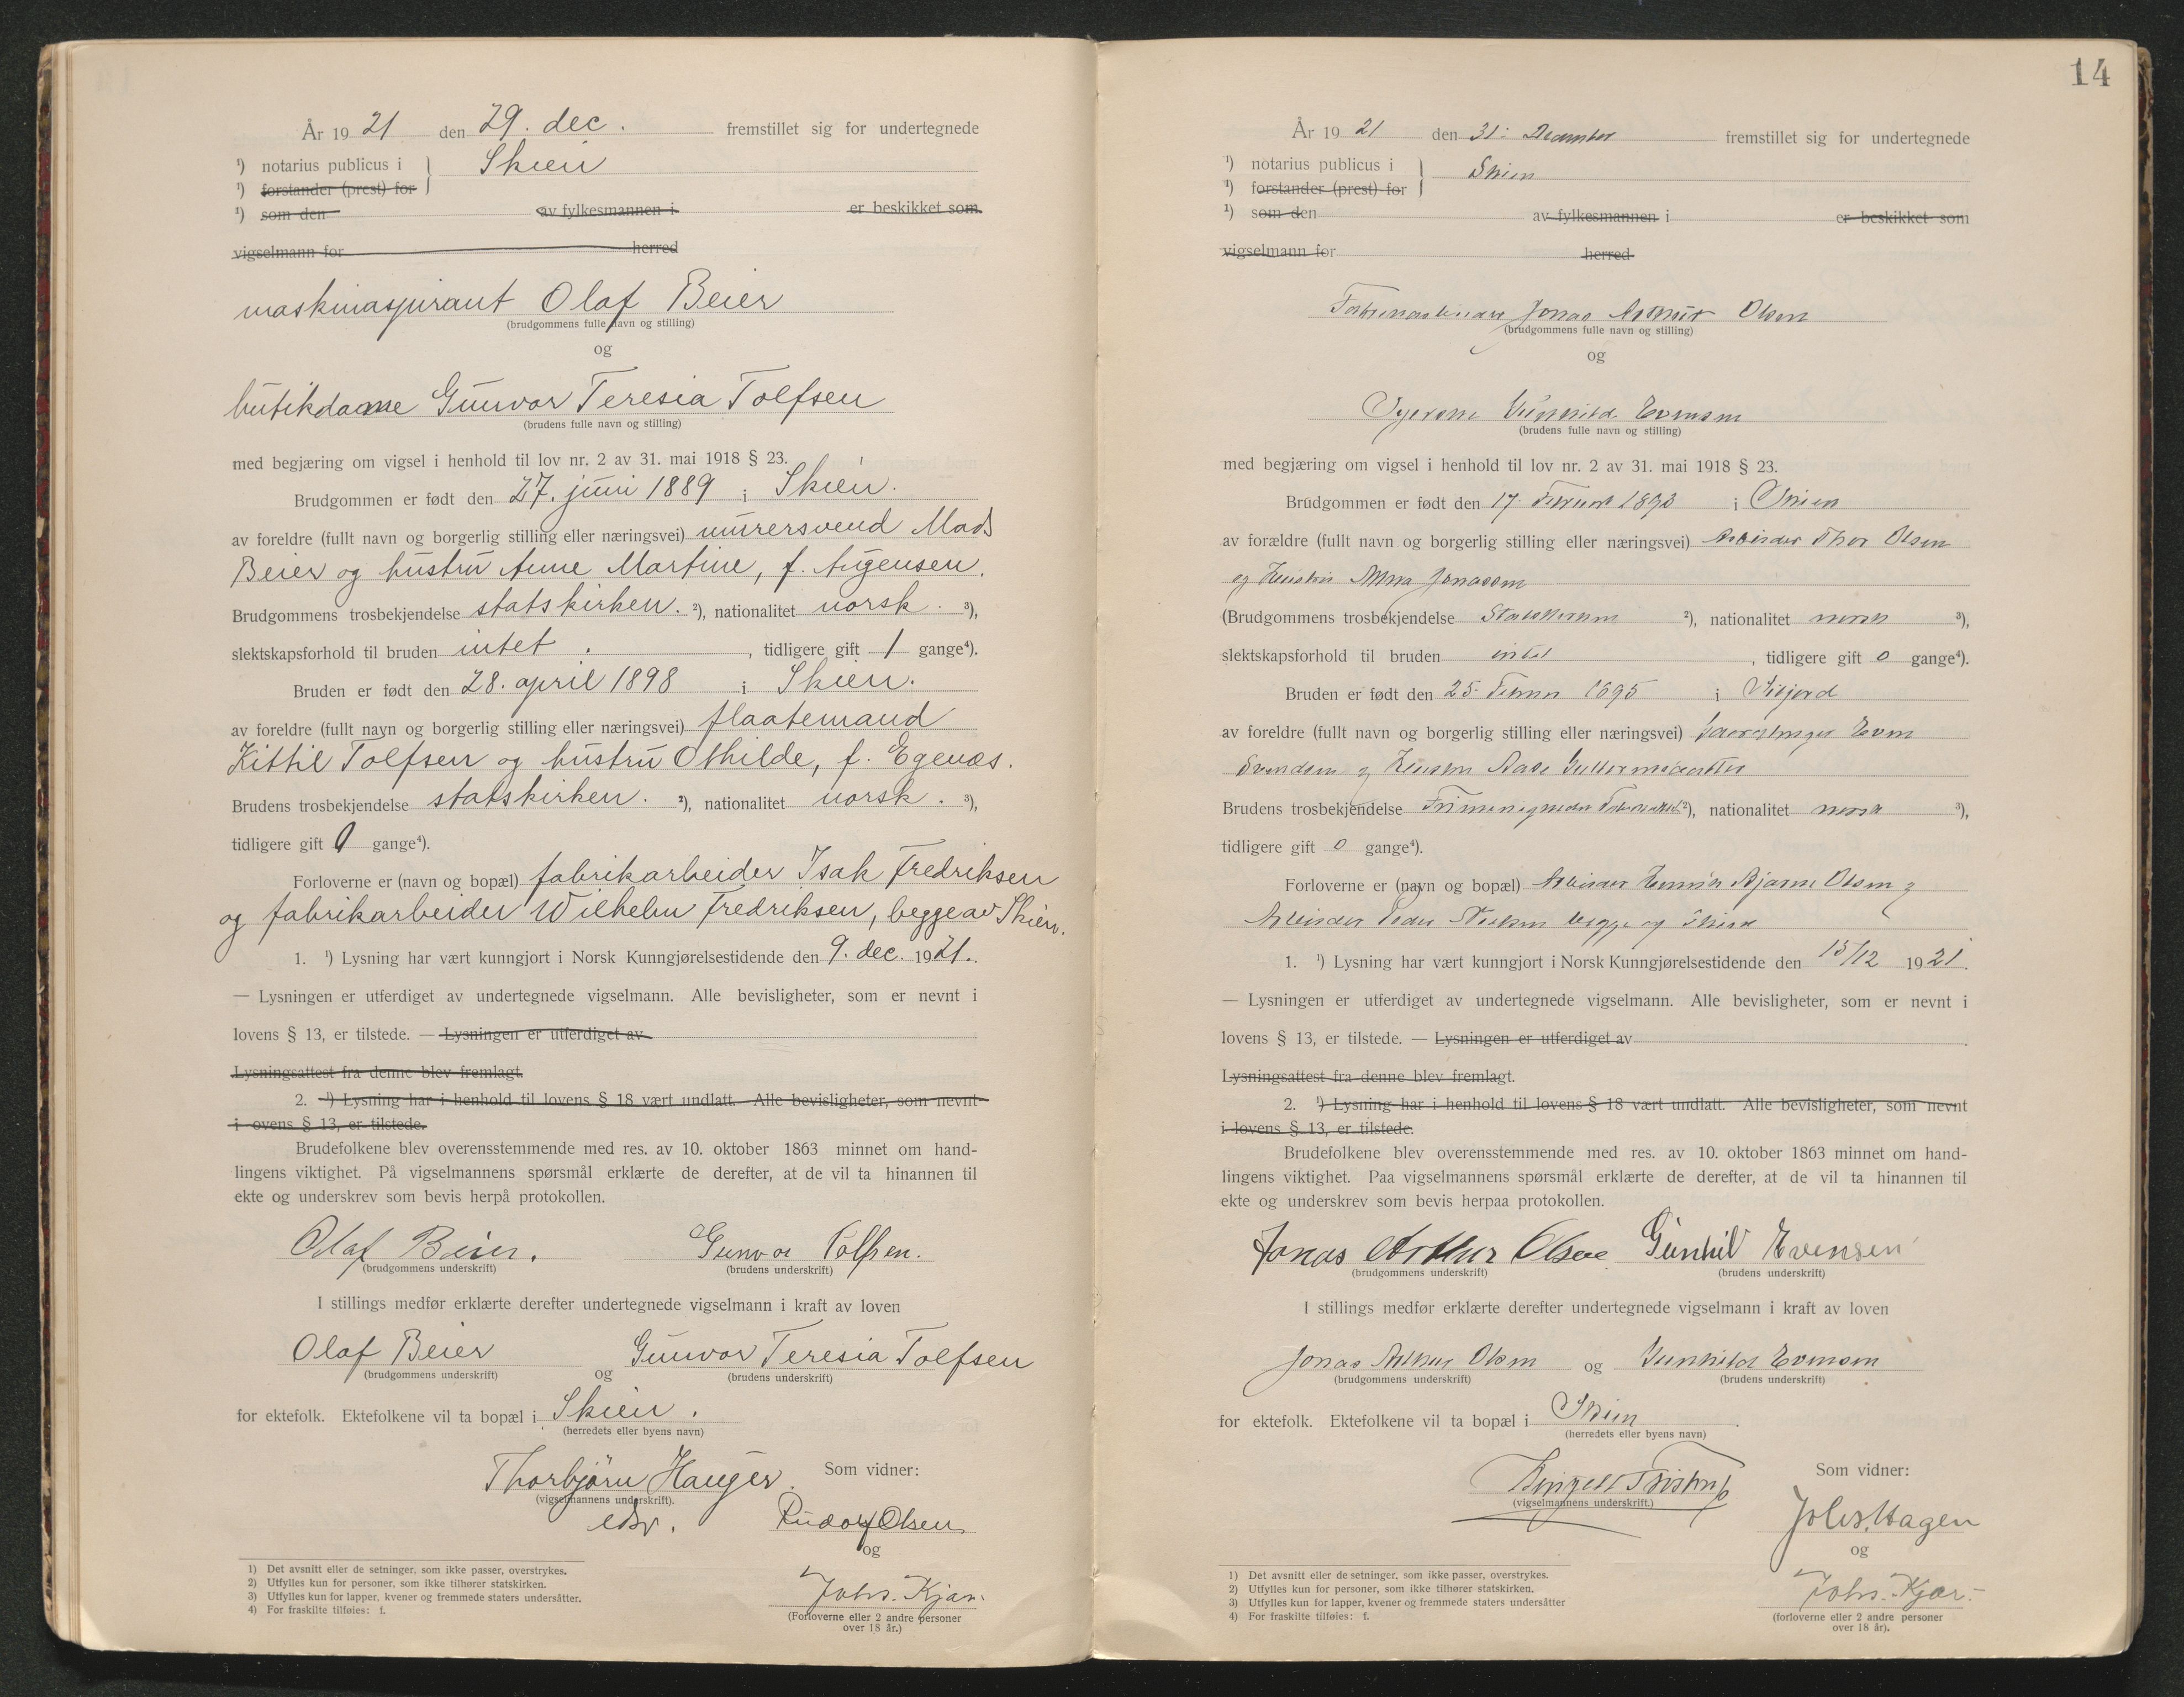 År 1921 den 29. dec. fremstillet sig for undertegnede
¹) notarius publicus i Skien
¹) forstander (prest) for
¹) som den av fylkesmannen i er beskikket som
vigselmann for herred
maskinaspirant Olaf Beier
(brudgommens fulle navn og stilling)
og
butikdame Gunvor Teresia Tolfsen
(brudens fulle navn og stilling)
med begjæring om vigsel i henhold til lov nr. 2 av 31. mai 1918 § 23.
Brudgommen er født den 27. juni 1889 i Skien.
av foreldre (fullt navn og borgerlig stilling eller næringsvei) murersvend Mads
Beier og hustru Anne Martine, f. Augensen.
Brudgommens trosbekjendelse statskirken. ²), nationalitet norsk. ³),
slektskapsforhold til bruden intet. , tidligere gift 1 gange⁴).
Bruden er født den 28. april 1898 i Skien.
av foreldre (fullt navn og borgerlig stilling eller næringsvei) flaatemand
Kittil Tolfsen og hustru Othilde, f. Egenæs.
Brudens trosbekjendelse statskirken. ²), nationalitet norsk. ³),
tidligere gift 0 gange⁴).
Forloverne er (navn og bopæl) fabrikarbeider Isak Fredriksen
og fabrikarbeider Wilhelm Fredriksen, begge av Skien.
1. ¹) Lysning har vært kunngjort i Norsk Kunngjørelsestidende den 9. dec. 1921.
— Lysningen er utferdiget av undertegnede vigselmann. Alle bevisligheter, som er nevnt i
lovens § 13, er tilstede. — Lysningen er utferdiget av
Lysningsattest fra denne blev fremlagt.
2. ¹) Lysning har i henhold til lovens § 18 vært undlatt. Alle bevisligheter, som nevnt
i ovens § 13, er tilstede.
Brudefolkene blev overensstemmende med res. av 10. oktober 1863 minnet om hand-
lingens viktighet. På vigselmannens spørsmål erklærte de derefter, at de vil ta hinannen til
ekte og underskrev som bevis herpå protokollen.
Olaf Beier. Gunvor Tolfsen.
(brudgommens underskrift) (brudens underskrift)
I stillings medfør erklærte derefter undertegnede vigselmann i kraft av loven
Olaf Beier og Gunvor Teresia Tolfsen
(brudgommens underskrift) (brudens underskrift)
for ektefolk. Ektefolkene vil ta bopæl i Skien.
(herredets eller byens navn)
Thorbjørn Hauger
Som vidner:
(vigselmannens underskrift).
edsv.
Rudolf Olsen
og
Johs. Kjær.
(Forloverne eller 2 andre personer
over 18 år.)
1) Det avsnitt eller de setninger, som ikke passer, overstrykes.
2) Utfylles kun for personer, som ikke tilhører statskirken.
3) Utfylles kun for lapper, kvener og fremmede staters undersåtter.
4) For fraskilte tilføies: f.
14
År 1921 den 31. December fremstillet sig for undertegnede
¹) notarius publicus i Skien
¹) forstander (prest) for
¹) som den av fylkesmannen i er beskikket som
vigselmann for herred
Jonas Arthur Olsen
(brudgommens fulle navn og stilling)
og
Syerske Gunhild Evensen
(brudens fulle navn og stilling)
med begjæring om vigsel i henhold til lov nr. 2 av 31. mai 1918 § 23.
Brudgommen er født den 17. Februar 1893 i Skien
av forældre (fullt navn og borgerlig stilling eller næringsvei) Arbeider Thor Olsen
og Hustru Anna Jonassen
(Brudgommens trosbekjendelse Statskirken ²), nationalitet norsk ³),
slektskapsforhold til bruden intet , tidligere gift 0 gange⁴).
Bruden er født den 25. Februar 1895 i Siljord
av foreldre (fullt navn og borgerlig stilling eller næringsvei) Gaardbruger Even
Svendsen og Hustru Aase Guttormsdatter
Brudens trosbekjendelse ²), nationalitet norsk ³),
tidligere gift 0 gange⁴).
Forloverne er (navn og bopæl) Arbeider Henrik Bjarne Olsen og
Arbeider Peder begge av Skien
1. ¹) Lysning har vært kunngjort i Norsk Kunngjørelsestidende den 15/12 1921.
— Lysningen er utferdiget av undertegnede vigselmann. Alle bevisligheter, som er nevnt i
lovens § 13, er tilstede. — Lysningen er utferdiget av
Lysningsattest fra denne blev fremlagt.
2. ¹) Lysning har i henhold til lovens § 18 vært undlatt. Alle bevisligheter, som nevnt
i lovens § 13, er tilstede.
Brudefolkene blev overensstemmende med res. av 10. oktober 1863 minnet om hand-
lingens viktighet. Paa vigselmannens spørsmål erklærte de derefter, at de vil ta hinannen til
ekte og underskrev som bevis herpaa protokollen.
Jonas Arthur Olsen Gunhil Evensen
(brudgommens underskrift) (brudens underskrift)
I stillings medfør erklærte derefter undertegnede vigselmann i kraft av loven
Jonas Arthur Olsen og Gunhild Evensen
(brudgommens underskrift) (brudens underskrift)
for ektefolk. Ektefolkene vil ta bopæl i Skien.
(herredets eller byens navn)
Som vidner:
(vigselmannens underskrift.)
Johs. Hagen
og
Johs. Kjær.
(forloverne eller 2 andre personer
over 18 år).
1) Det avsnitt eller de setninger, som ikke passer, overstrykes.
2) Utfylles kun for personer, som ikke tilhører statskirken.
3) Utfylles kun for lapper, kvener og fremmede staters undersåtter
4) For fraskilte tilføies: f.